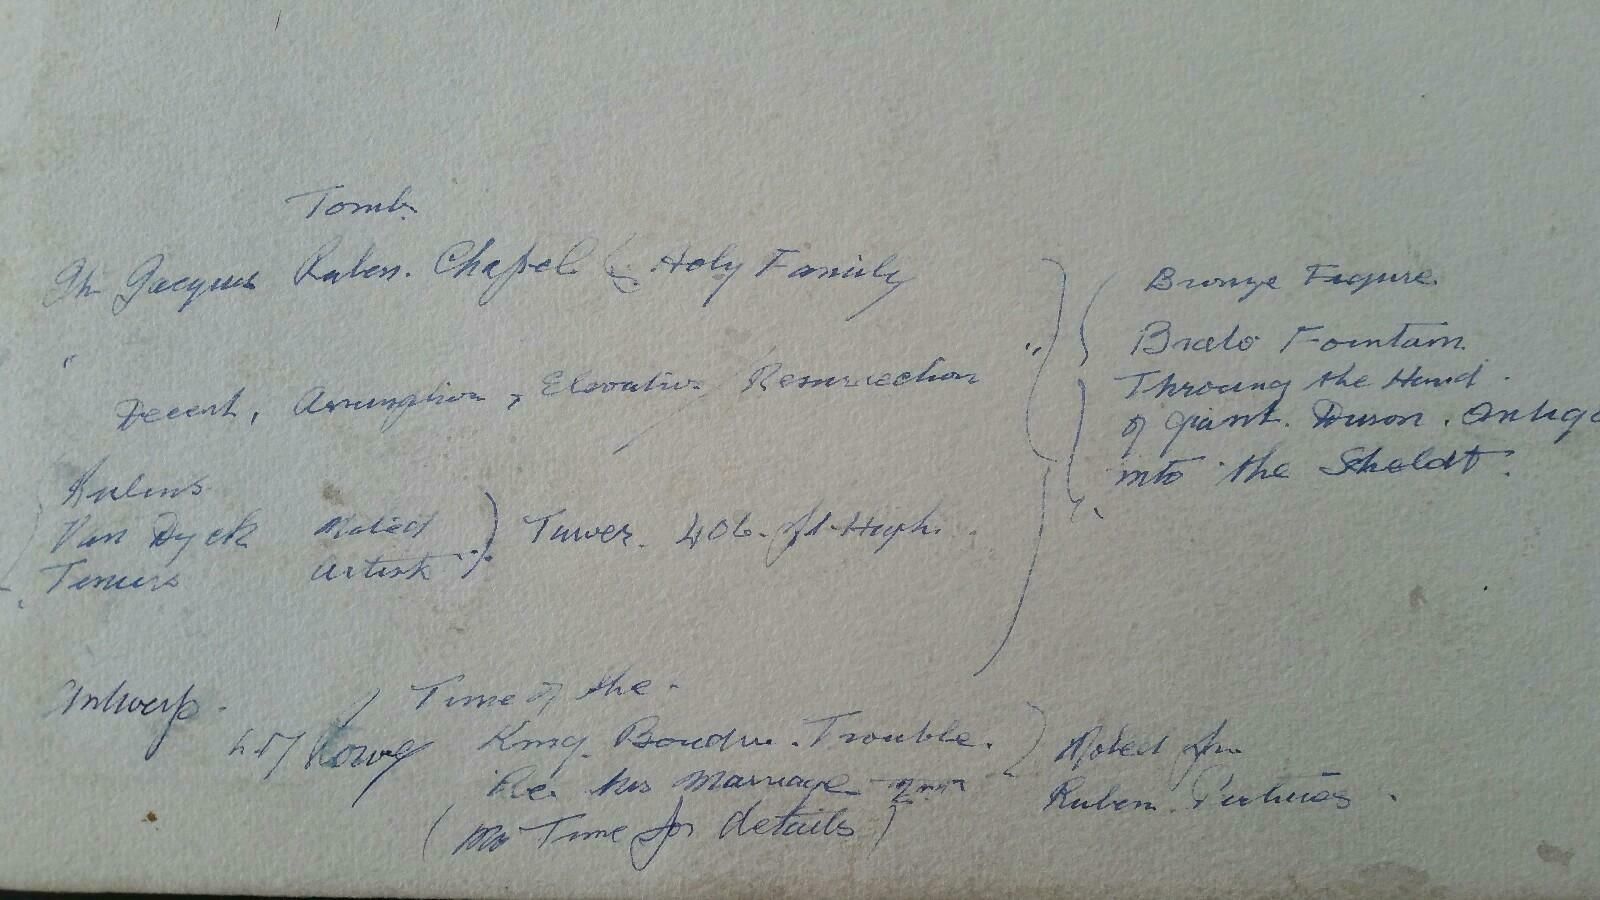 Tomb.
Ch Jacques Ruben. Chapel ( Holy Family
"
Decent, Assumption, Elevation, Resurrection "
Rubens
Van Dyck Noted
Teniers artist
Tower. 406. ft. High.
Bronze Figure
Brabo Fountain.
Throwing the Hand.
of giant. Antigo
into the Scheldt.
Antwerp.
Time of the.
King. Trouble.
Re. his Marriage 2nd
(No Time for details)
Noted for
Ruben.